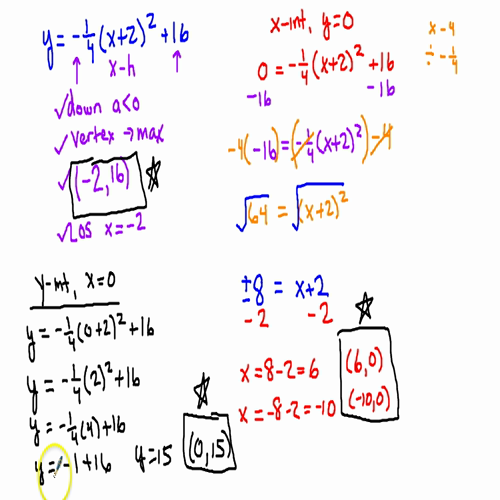 y = -1/4(x+2)² + 16
x-h
✓down a<0
✓vertex → max
✓(-2, 16)
✓LOS x = -2
x-int, y=0
0 = -1/4(x+2)² + 16
-16 -16
-4(-16) = (-1/4(x+2)²) -4
√64 = √(x+2)²
x -4
÷ -1/4
±8 = x+2
-2 -2
x = 8-2 = 6
x = -8-2 = -10
(6,0)
(-10,0)
y-int, x=0
y = -1/4(0+2)² + 16
y = -1/4(2)² + 16
y = -1/4(4) + 16
y = -1 + 16 y = 15 (0,15)